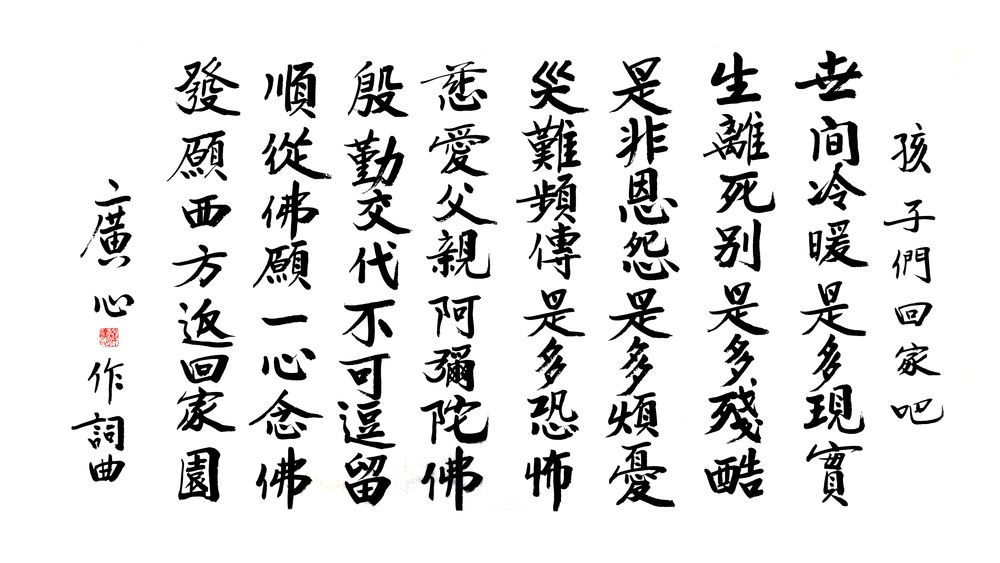 孩子們回家吧
世间冷暖是多現實
生離死别是多殘酷
是非恩怨是多煩憂
災難頻傳是多恐怖
慈愛父親阿彌陀佛
殷勤交代不可逗留
順從佛願一心念佛
發願西方返回家園
廣心作詞曲